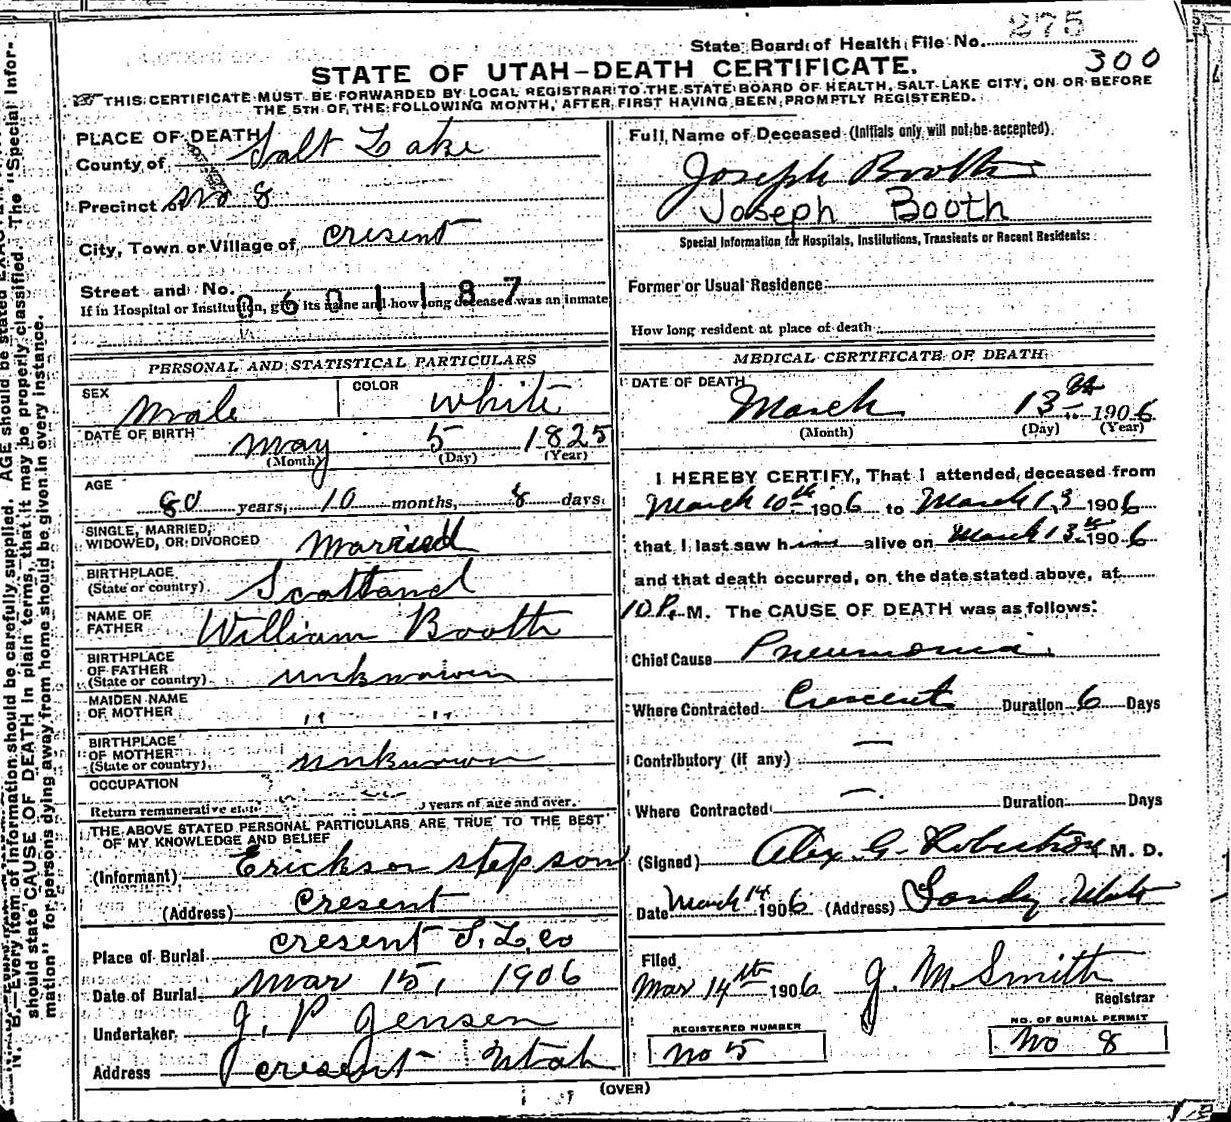 275
State Board of Health File No.
300
STATE OF UTAH-DEATH CERTIFICATE.
THIS CERTIFICATE MUST BE FORWARDED BY LOCAL REGISTRAR TO THE STATE BOARD OF HEALTH, SALT LAKE CITY, ON OR BEFORE
THE 5TH OF THE FOLLOWING MONTH, AFTER FIRST HAVING BEEN PROMPTLY REGISTERED.
PLACE OF DEATH
County of Salt Lake
Precinct of No 8
City, Town or Village of Cresent
Street and No.
0601187
If in Hospital or Institution, give its name and how long deceased was an inmate
PERSONAL AND STATISTICAL PARTICULARS
SEX Male COLOR White
DATE OF BIRTH May 5 1825
(Month) (Day) (Year)
AGE
80 years, 10 months, 8 days.
SINGLE, MARRIED,
WIDOWED, OR DIVORCED Married
BIRTHPLACE
(State or country) Scotland
NAME OF
FATHER William Booth
BIRTHPLACE
OF FATHER
(State or country) unknown
MAIDEN NAME
OF MOTHER " "
BIRTHPLACE
OF MOTHER
(State or country) unknown
OCCUPATION
Return remunerative years of age and over.
THE ABOVE STATED PERSONAL PARTICULARS ARE TRUE TO THE BEST
OF MY KNOWLEDGE AND BELIEF
(Informant) Erickson step son
(Address) Cresent
Place of Burial Cresent S. L. Co
Date of Burial Mar 15, 1906
Undertaker J. P Jensen
Address Cresent Utah
Full Name of Deceased (Initials only will not be accepted).
Joseph Booth
Joseph Booth
Special Information for Hospitals, Institutions, Transients or Recent Residents:
Former or Usual Residence
How long resident at place of death
MEDICAL CERTIFICATE OF DEATH
DATE OF DEATH March 13th 1906
(Month) (Day) (Year)
I HEREBY CERTIFY, That I attended deceased from
March 10th 1906 to March 13 1906
that I last saw him alive on March 13th 1906
and that death occurred, on the date stated above, at
10 P. M. The CAUSE OF DEATH was as follows:
Chief Cause Pneumonia.
Where Contracted Crescent Duration 6 Days
Contributory (if any) —
Where Contracted — Duration Days
(Signed) Alex. G. Robertson M. D.
Date March 14 1906 (Address) Sandy Utah
Filed
Mar 14th 1906 J. M. Smith
Registrar
REGISTERED NUMBER
No 5
NO. OF BURIAL PERMIT
No 8
(OVER)
N. B.—Every item of information should be carefully supplied. AGE should be stated
should state CAUSE OF DEATH in plain terms, that it may be properly classified. The "Special Infor-
mation" for persons dying away from home should be given in every instance.